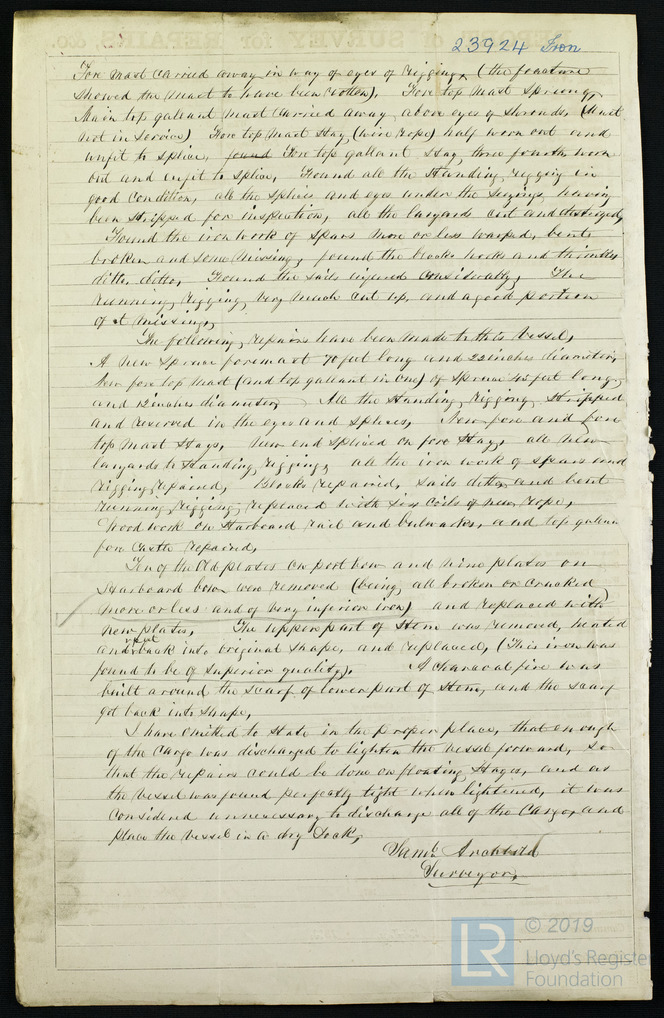 23924 Iron
Fore mast carried away in way of eyes of rigging, (the fracture
showed the mast to have been rotten), Fore top mast sprung,
Main top gallant mast carried away above eyes of shrouds, (
not in service) Fore top mast stay (wire rope) half worn out and
unfit to splice, found Fore top gallant stay, three fourths worn
out and unfit to splice, Found all the standing rigging in
good condition, all the splices and eyes under the seizings having
been stripped for inspection, all the lanyards cut and destroyed,
Found the iron work of spars more or less warped, bent
broken and some missing, found the blocks hooks and thimbles
ditto, ditto, Found the sails injured considerably, The
running rigging very much cut up, and a good portion
of it missing,
The following repairs have been made to this vessel,
A new spruce foremast 70 feet long and 22 inches diameter,
New fore top mast (and top gallant in one) of spruce 45 feet long
and 12 inches diameter, All the standing rigging stripped
and reserved in the eyes and splices, New fore and fore
top mast stays, New end spliced on fore stay, all new
lanyards to standing rigging, all the iron work of spars and
rigging repaired, Blocks repaired, sails ditto, and bent
running rigging replaced with six coils of new rope,
Wood work on starboard rail and bulwarks, and top gallant
fore castle repaired,
Ten of the old plates on port bow and nine plates on
starboard bow were removed (being all broken or cracked
more or less and of very inferior iron) and replaced with
new plates, The upper part of stem was removed, heated
and put back into original shape, and replaced, (This iron was
found to be of superior quality). A charcoal fire was
built around the scarf of lower part of stem, and the scarf
got back into shape,
I have omitted to state in the proper place, that enough
of the cargo was discharged to lighten the vessel forward, so
that the repairs could be done on floating stages, and as
the vessel was found perfectly tight when lightened, it was
considered unnecessary to discharge all of the cargo, and
place the vessel in a dry dock,
Saml Archbold
Surveyor,
LR © 2019
Lloyd's Register
Foundation